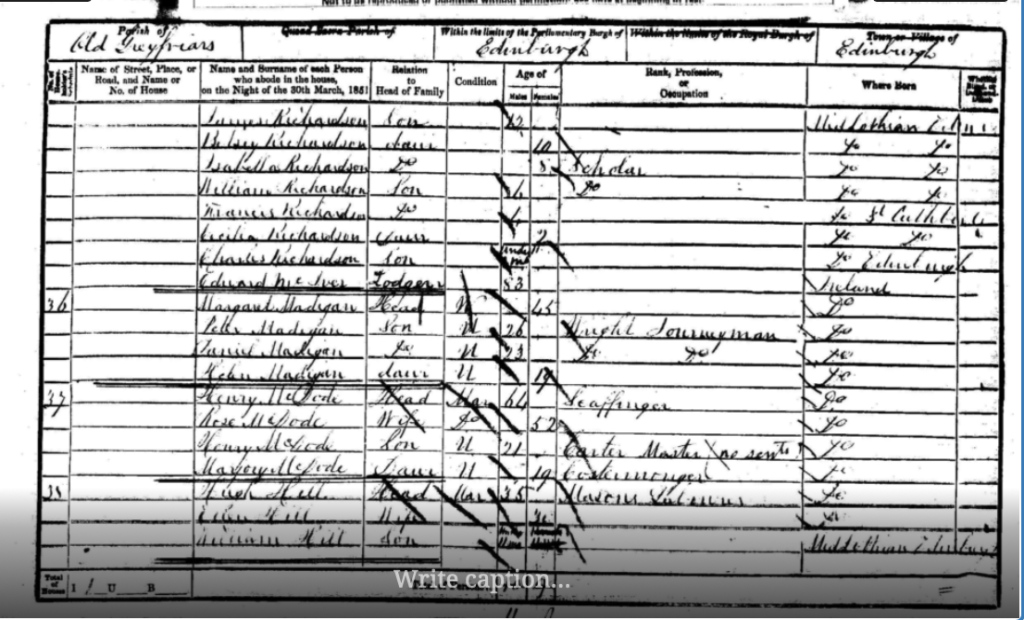 Parish of Quoad Sacra Parish of Within the limits of the Parliamentary Burgh of Within the limits of the Royal Burgh of Town or Village of
Old Greyfriars Edinburgh Edinburgh
Name of Street, Place, or Road, and Name or No. of House Name and Surname of each Person who abode in the house, on the Night of the 30th March, 1851 Relation to Head of Family Condition Age of Males Females Rank, Profession, or Occupation Where Born
James Richardson Son 12 Midlothian
Betsy Richardson Daur 10 Do Do
Isabella Richardson Do 8 Scholar Do Do
William Richardson Son Do Do Do
Francis Richardson Do Do St Cuthberts
Cecilia Richardson Daur 2 Do Do
Charles Richardson Son Do Edinburgh
Edward McIver Lodger 83 Ireland
36 Margaret Madigan Head W 45 Do
Peter Madigan Son U 26 Wright Journeyman Do
Daniel Madigan Do U 23 Do Do Do
Helen Madigan daur U 19 Do
37 Henry McDode Head Mar 64 Scaffinger Do
Rose McDode Wife Do 52 Do
Henry McDode Son U 21 Carter Master Do
McDode Daur U 19 Do
Hugh Hill Head Mar 35 Masons Do
Hill Wife
William Hill Son Midlothian Edinburgh
Total of Houses I U B
Write caption...